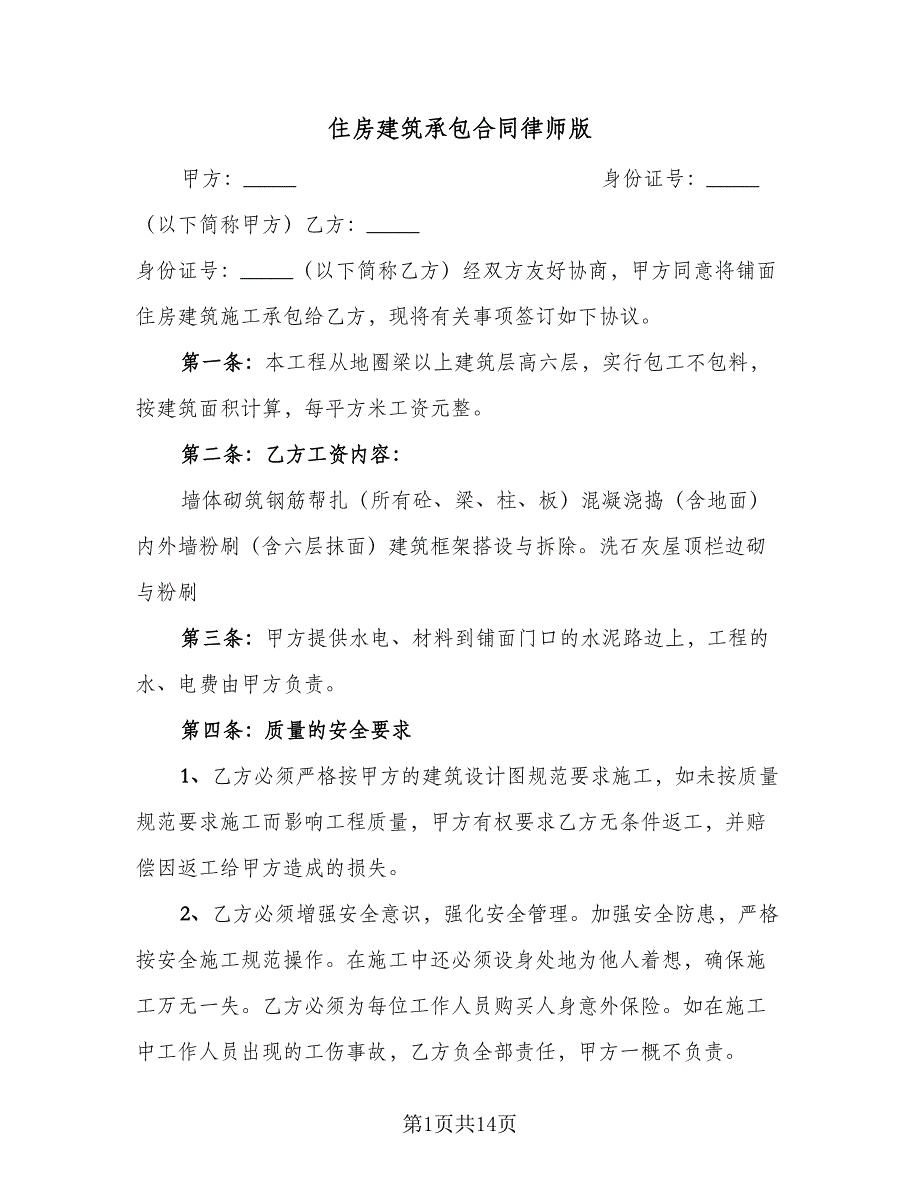 住房建筑承包合同律师版
甲方：_____ 身份证号：_____
（以下简称甲方）乙方：_____
身份证号：_____（以下简称乙方）经双方友好协商，甲方同意将铺面
住房建筑施工承包给乙方，现将有关事项签订如下协议。
第一条：本工程从地圈梁以上建筑层高六层，实行包工不包料，
按建筑面积计算，每平方米工资元整。
第二条：乙方工资内容：
墙体砌筑钢筋帮扎（所有砼、梁、柱、板）混凝浇捣（含地面）
内外墙粉刷（含六层抹面）建筑框架搭设与拆除。洗石灰屋顶栏边砌
与粉刷
第三条：甲方提供水电、材料到铺面门口的水泥路边上，工程的
水、电费由甲方负责。
第四条：质量的安全要求
1、乙方必须严格按甲方的建筑设计图规范要求施工，如未按质量
规范要求施工而影响工程质量，甲方有权要求乙方无条件返工，并赔
偿因返工给甲方造成的损失。
2、乙方必须增强安全意识，强化安全管理。加强安全防患，严格
按安全施工规范操作。在施工中还必须设身处地为他人着想，确保施
工万无一失。乙方必须为每位工作人员购买人身意外保险。如在施工
中工作人员出现的工伤事故，乙方负全部责任，甲方一概不负责。
第1页共14页